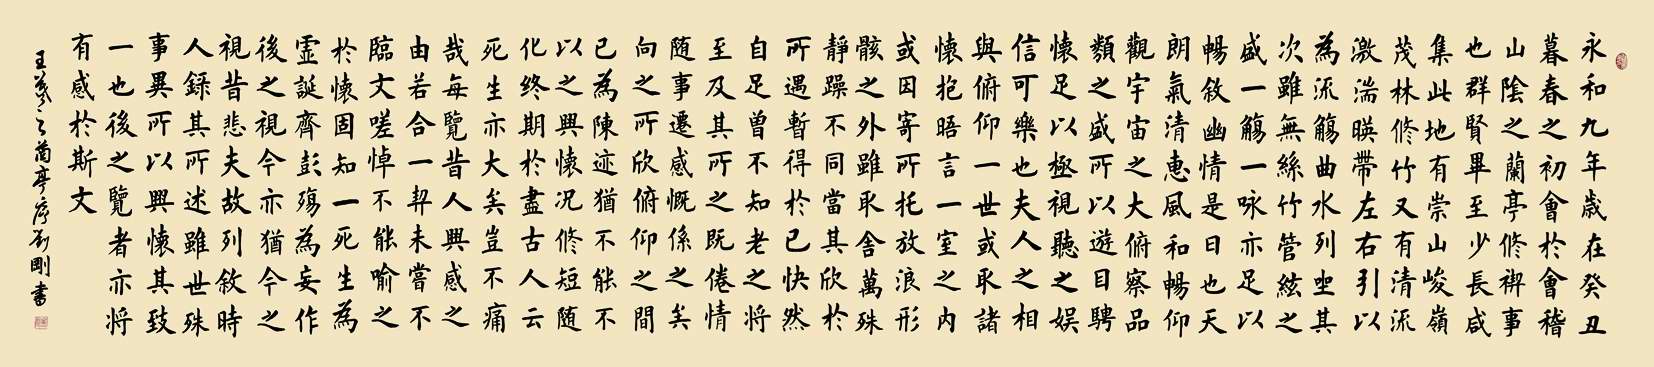 永和九年歲在癸丑
暮春之初會於會稽
山陰之蘭亭修禊事
也群賢畢至少長咸
集此地有崇山峻嶺
茂林修竹又有清流
激湍暎帶左右引以
為流觴曲水列坐其
次雖無絲竹管絃之
盛一觴一咏亦足以
暢敘幽情是日也天
朗氣清惠風和暢仰
觀宇宙之大俯察品
類之盛所以遊目騁
懷足以極視聽之娛
信可樂也夫人之相
與俯仰一世或取諸
懷抱晤言一室之内
或因寄所托放浪形
骸之外雖取舍萬殊
靜躁不同當其欣於
所遇暫得於己快然
自足曾不知老之將
至及其所之既倦情
隨事遷感慨係之矣
向之所欣俯仰之間
已為陳迹猶不能不
以之興懷況修短隨
化終期於盡古人云
死生亦大矣豈不痛
哉每覽昔人興感之
由若合一契未嘗不
臨文嗟悼不能喻之
於懷固知一死生為
虛誕齊彭殤為妄作
後之視今亦猶今之
視昔悲夫故列敘時
人錄其所述雖世殊
事異所以興懷其致
一也後之覽者亦將
有感於斯文
王羲之蘭亭序劉剛書